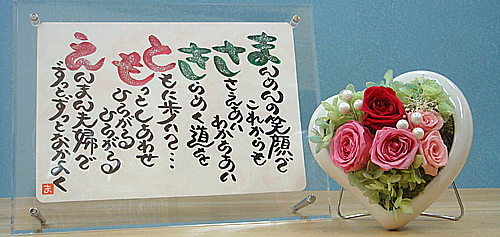 まんめんの笑顔で
これからも
ささえあい
わかちあい
きらめく道を
ともに歩いて…
もっとしあわせ
ひろがる
ひろがる
えんまん夫婦で
ずっとずっとなかよく
ま